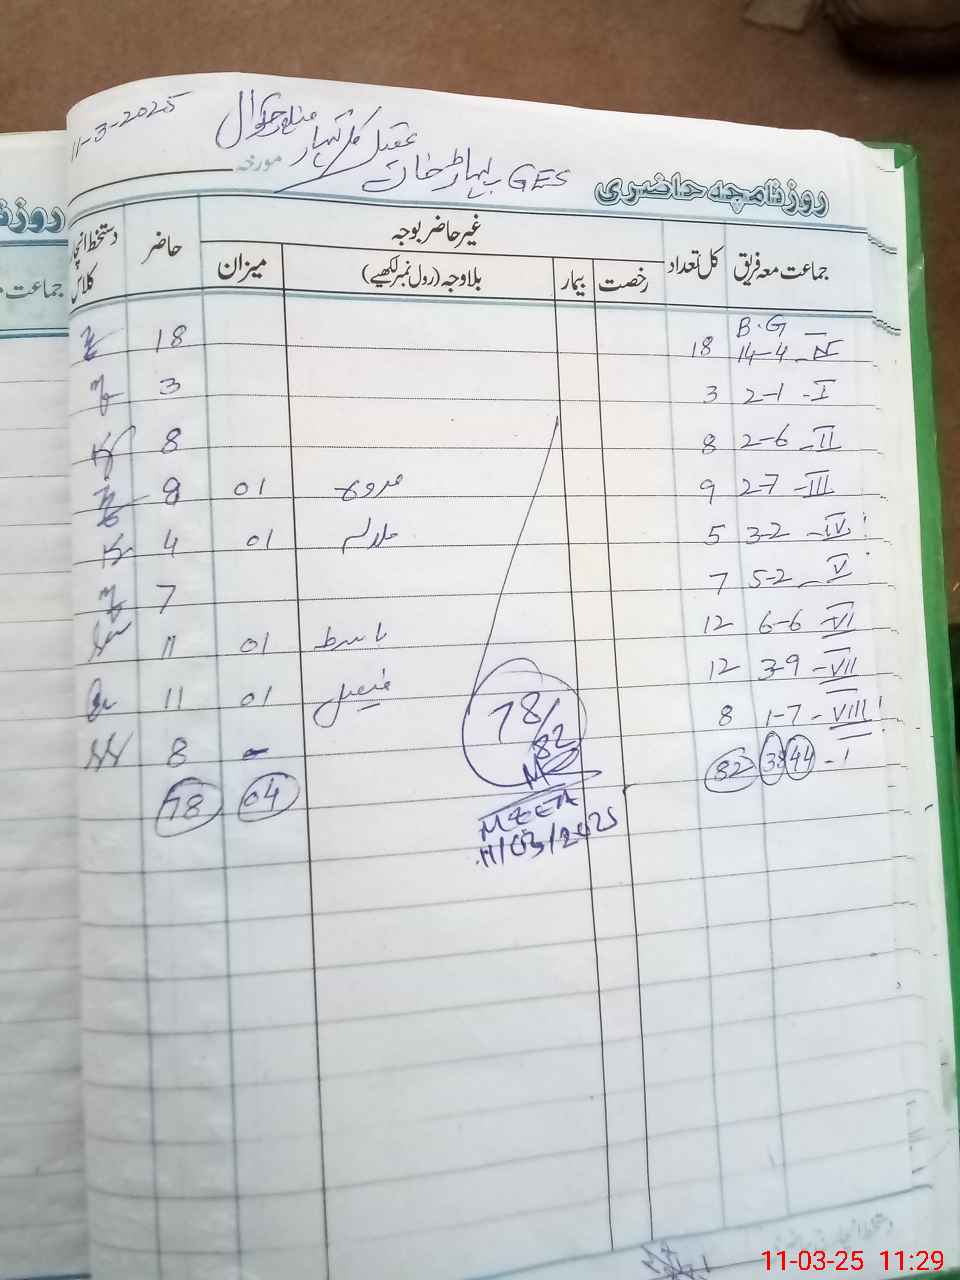 11-3-2025
GES پہاڑ خان
روزنامچہ حاضری مورخہ
جماعت معہ فریق کل تعداد غیر حاضر بوجہ حاضر دستخط انچارج کلاس
رخصت بیمار بلاوجہ (رول نمبر لکھیے) میزان
B.G
N 14-4 18 18
I 2-1 3 3
II 2-6 8 8
III 2-7 9 01 8
IV 3-2 5 01 4
V 5-2 7 7
VI 6-6 12 باسط 01 11
VII 3-9 12 فیصل 01 11
VIII 1-7 8 - 8
44 38 82 04 78
78/82
11/03/2025
روزنا
جماعت
11-03-25 11:29